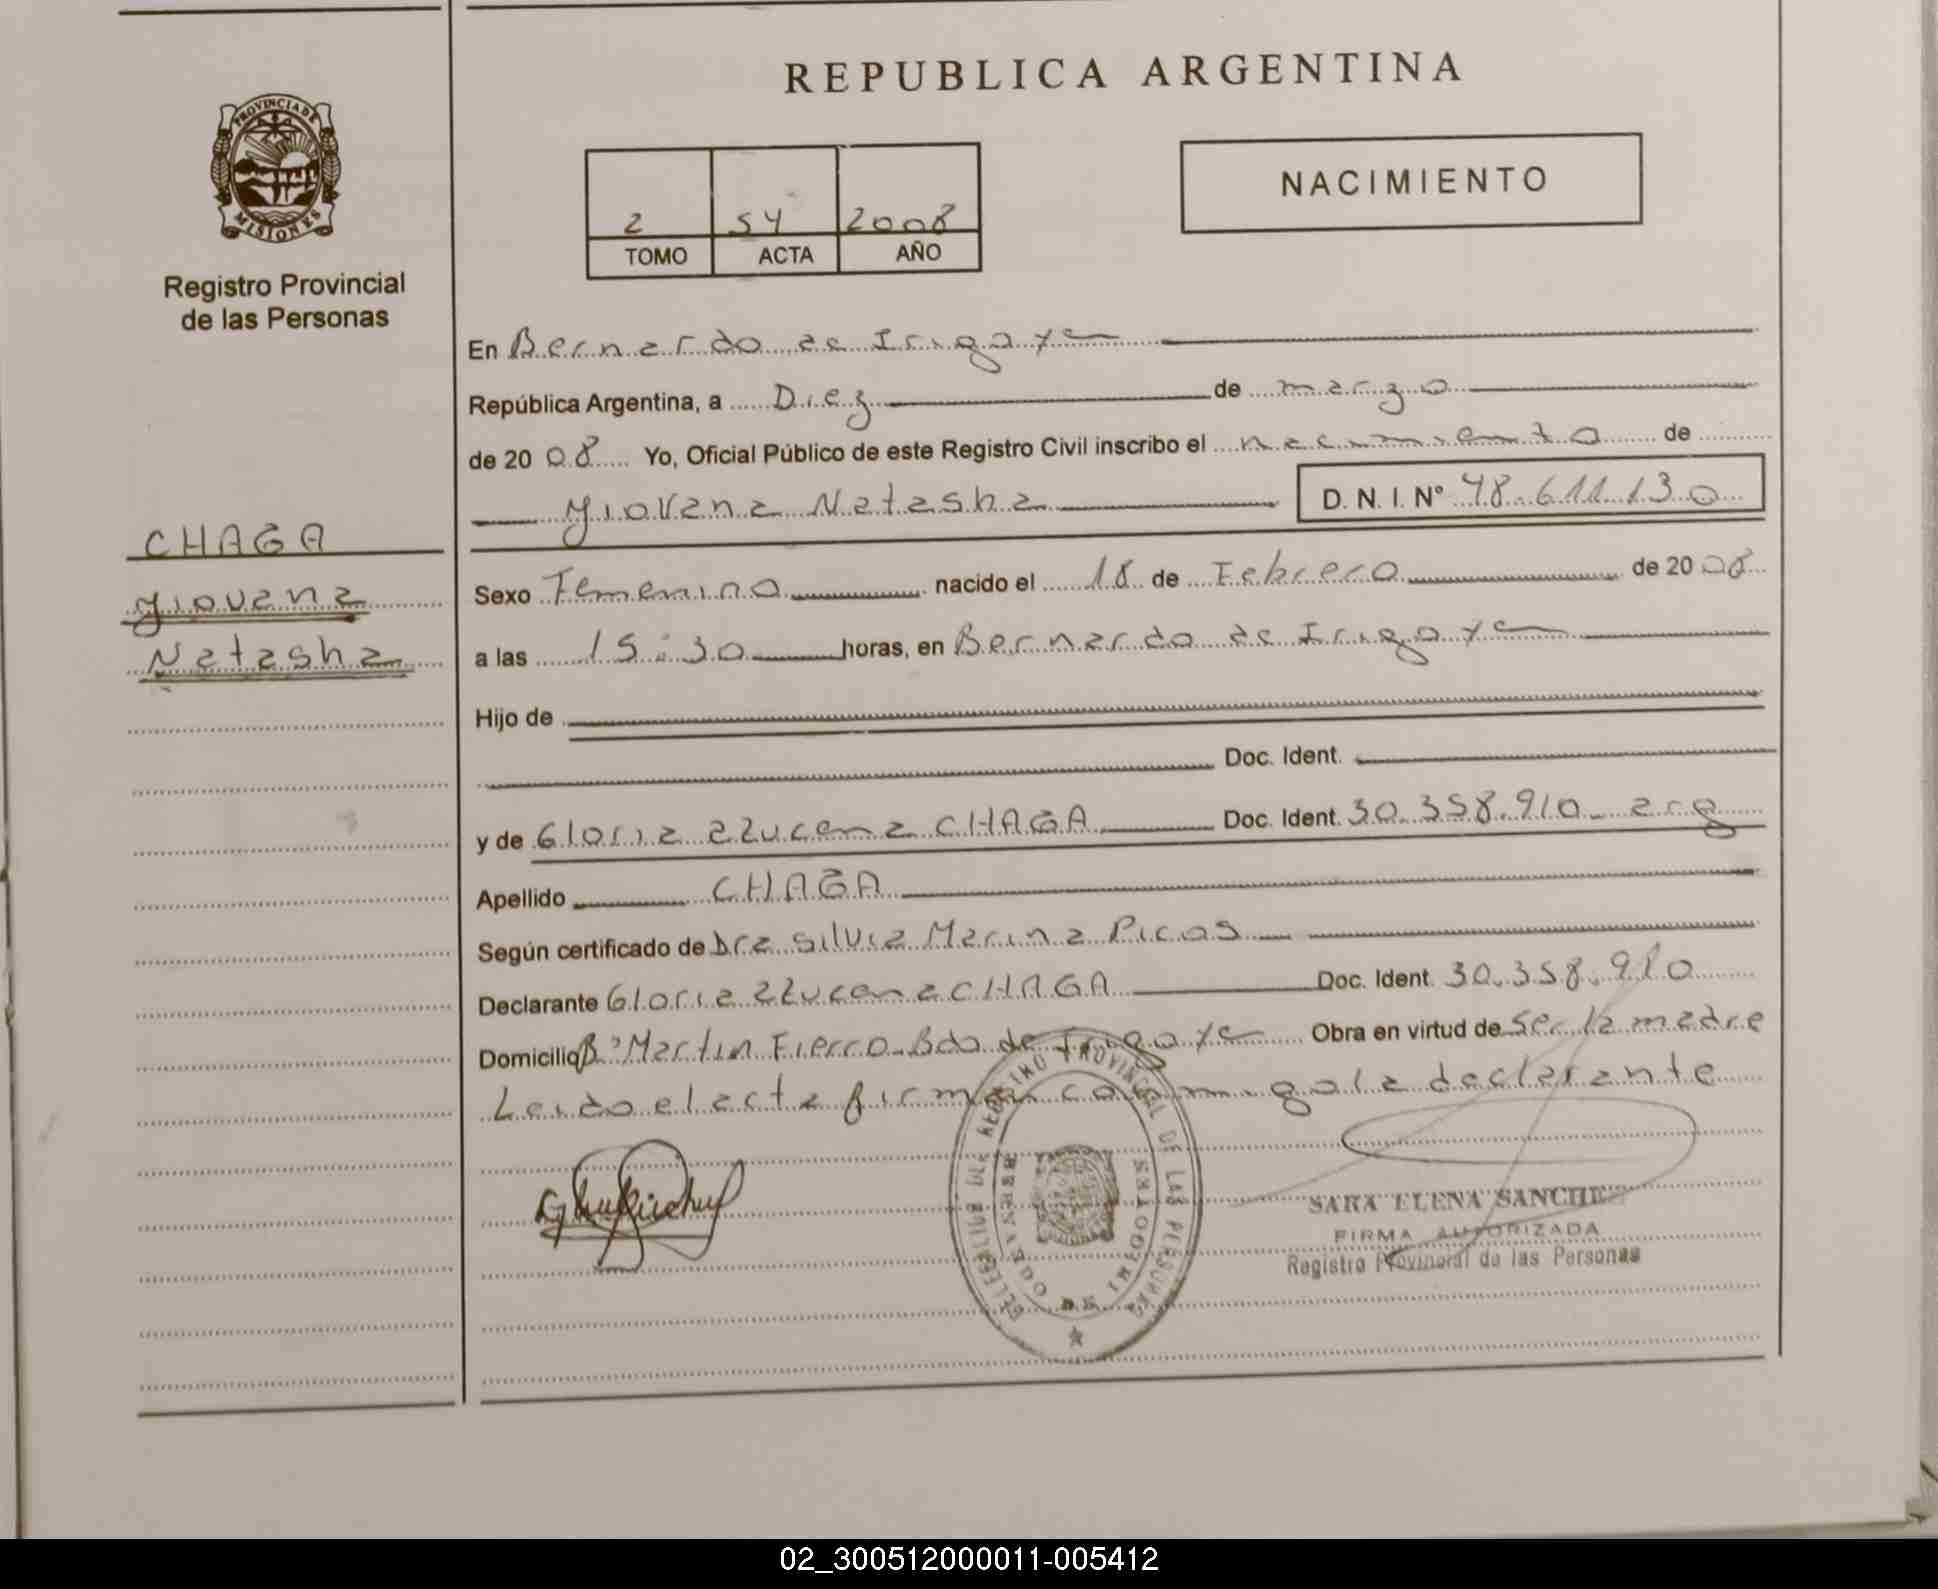 REPUBLICA ARGENTINA
PROVINCIA DE MISIONES
Registro Provincial
de las Personas
NACIMIENTO
2 54 2008
TOMO ACTA AÑO
En Bernardo de Irigoyen
República Argentina, a Diez de marzo
de 2008 Yo, Oficial Público de este Registro Civil inscribo el nacimiento de
Yiovana Natasha D. N. I. Nº 48.611.130
CHAGA
Yiovana
Natasha
Sexo Femenino nacido el 18 de Febrero de 2008
a las 15:30 horas, en Bernardo de Irigoyen
Hijo de
Doc. Ident.
y de Gloria Azucena CHAGA Doc. Ident. 30.358.910 arg
Apellido CHAGA
Según certificado de Dra Silvia Marina Picos
Declarante Gloria Azucena CHAGA Doc. Ident. 30.358.910
Domicilio Bº Martin Fierro Bdo de Irigoyen Obra en virtud de ser la madre
Leido el acta firman conmigo la declarante
REGISTRO PROVINCIAL DE LAS PERSONAS
SARA ELENA SANCHE
FIRMA AUTORIZADA
Registro Provincial de las Personas
02_300512000011-005412